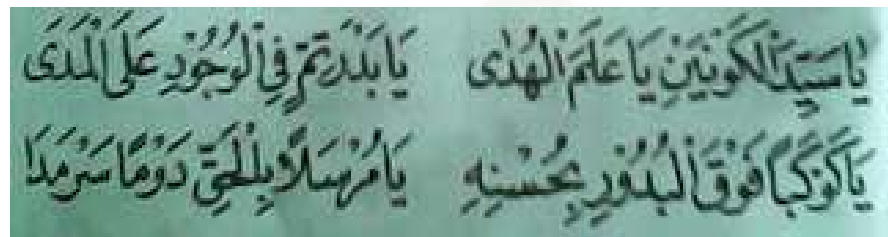 يَا سَيِّدَ الْكَوْنَيْنِ يَا عَلَمَ الْهُدَى يَا بَدْرَ تِمٍّ فِي الْوُجُوْدِ عَلَى الْمَدَى
يَا كَوْكَبًا فَوْقَ الْبُدُوْرِ بِحُسْنِهِ يَا مُرْسَلًا بِالْحَقِّ دَوْمًا سَرْمَدَا